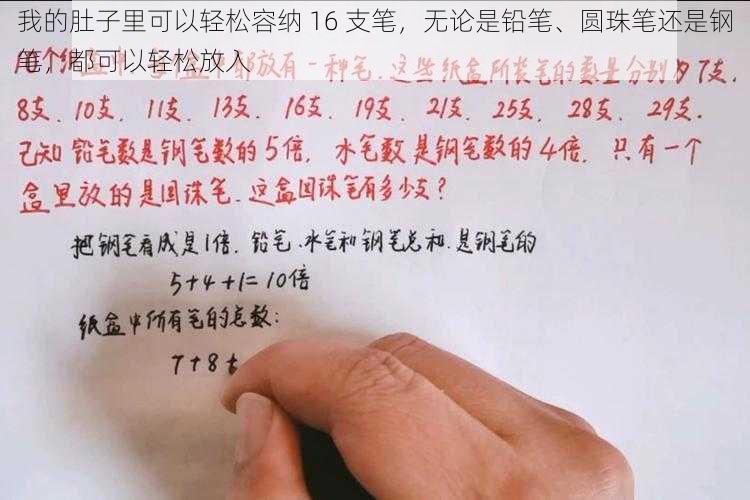 我的肚子里可以轻松容纳 16 支笔，无论是铅笔、圆珠笔还是钢
笔，都可以轻松放入
放有一种笔.这些纸盒所装笔的数量分别为7支、
8支、10支、11支、13支、16支、19支、21支、25支、28支、29支.
已知铅笔数是钢笔数的5倍，水笔数是钢笔数的4倍，只有一个
盒里放的是圆珠笔.这盒圆珠笔有多少支？
把钢笔看成是1倍.铅笔、水笔和钢笔总和.是钢笔的
5+4+1=10倍
纸盒中所有笔的总数：
7+8+